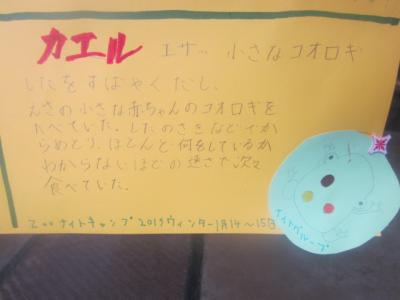 カエル エサ… 小さなコオロギ
したをすばやくだし、
えさの小さな赤ちゃんのコオロギを
たべていた。したのさきなどでか
らめとり、ほとんど何をしているか
わからないほどの速さで次々
食べていた。
Zooナイトキャンプ2019ウィンター1月14〜15日
ナイトグループ